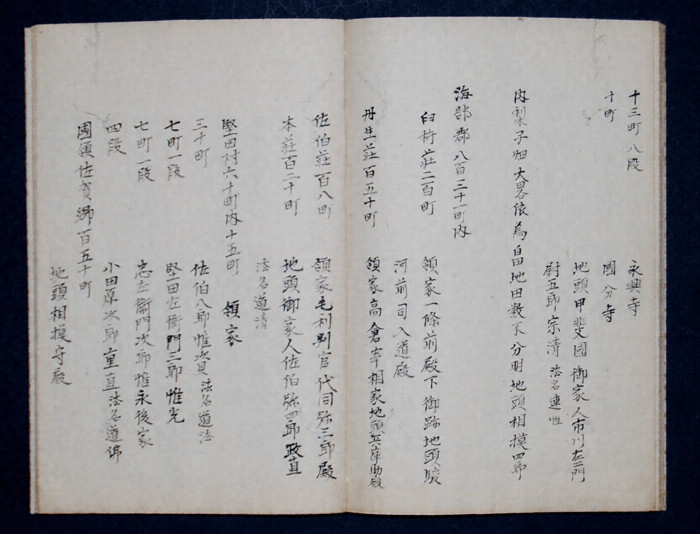 十三町八段　永興寺
十町　国分寺
地頭甲斐国御家人市川左衛門
尉五郎宗清 法名連性
内梨子畑大畧依為畠地田数不分明地頭相摸四郎
海部郡八百三十一町内
臼杵荘二百町　領家一條前殿下御跡地頭駿
河前司入道殿
丹生荘百五十町　領家高倉宰相家地頭兵庫助殿
佐伯荘百八町　領家毛利判官代同弥三郎殿
本荘百二十町　地頭御家人佐伯弥四郎政直
法名道清
堅田村六十町内十五町　領家
三十町　佐伯八郎惟資 法名道法
七町一段　堅田左衛門三郎惟光
七町一段　左衛門次郎惟永後家
四段　小田原次郎重直 法名道佛
国領佐賀郷百五十町
地頭相摸守殿